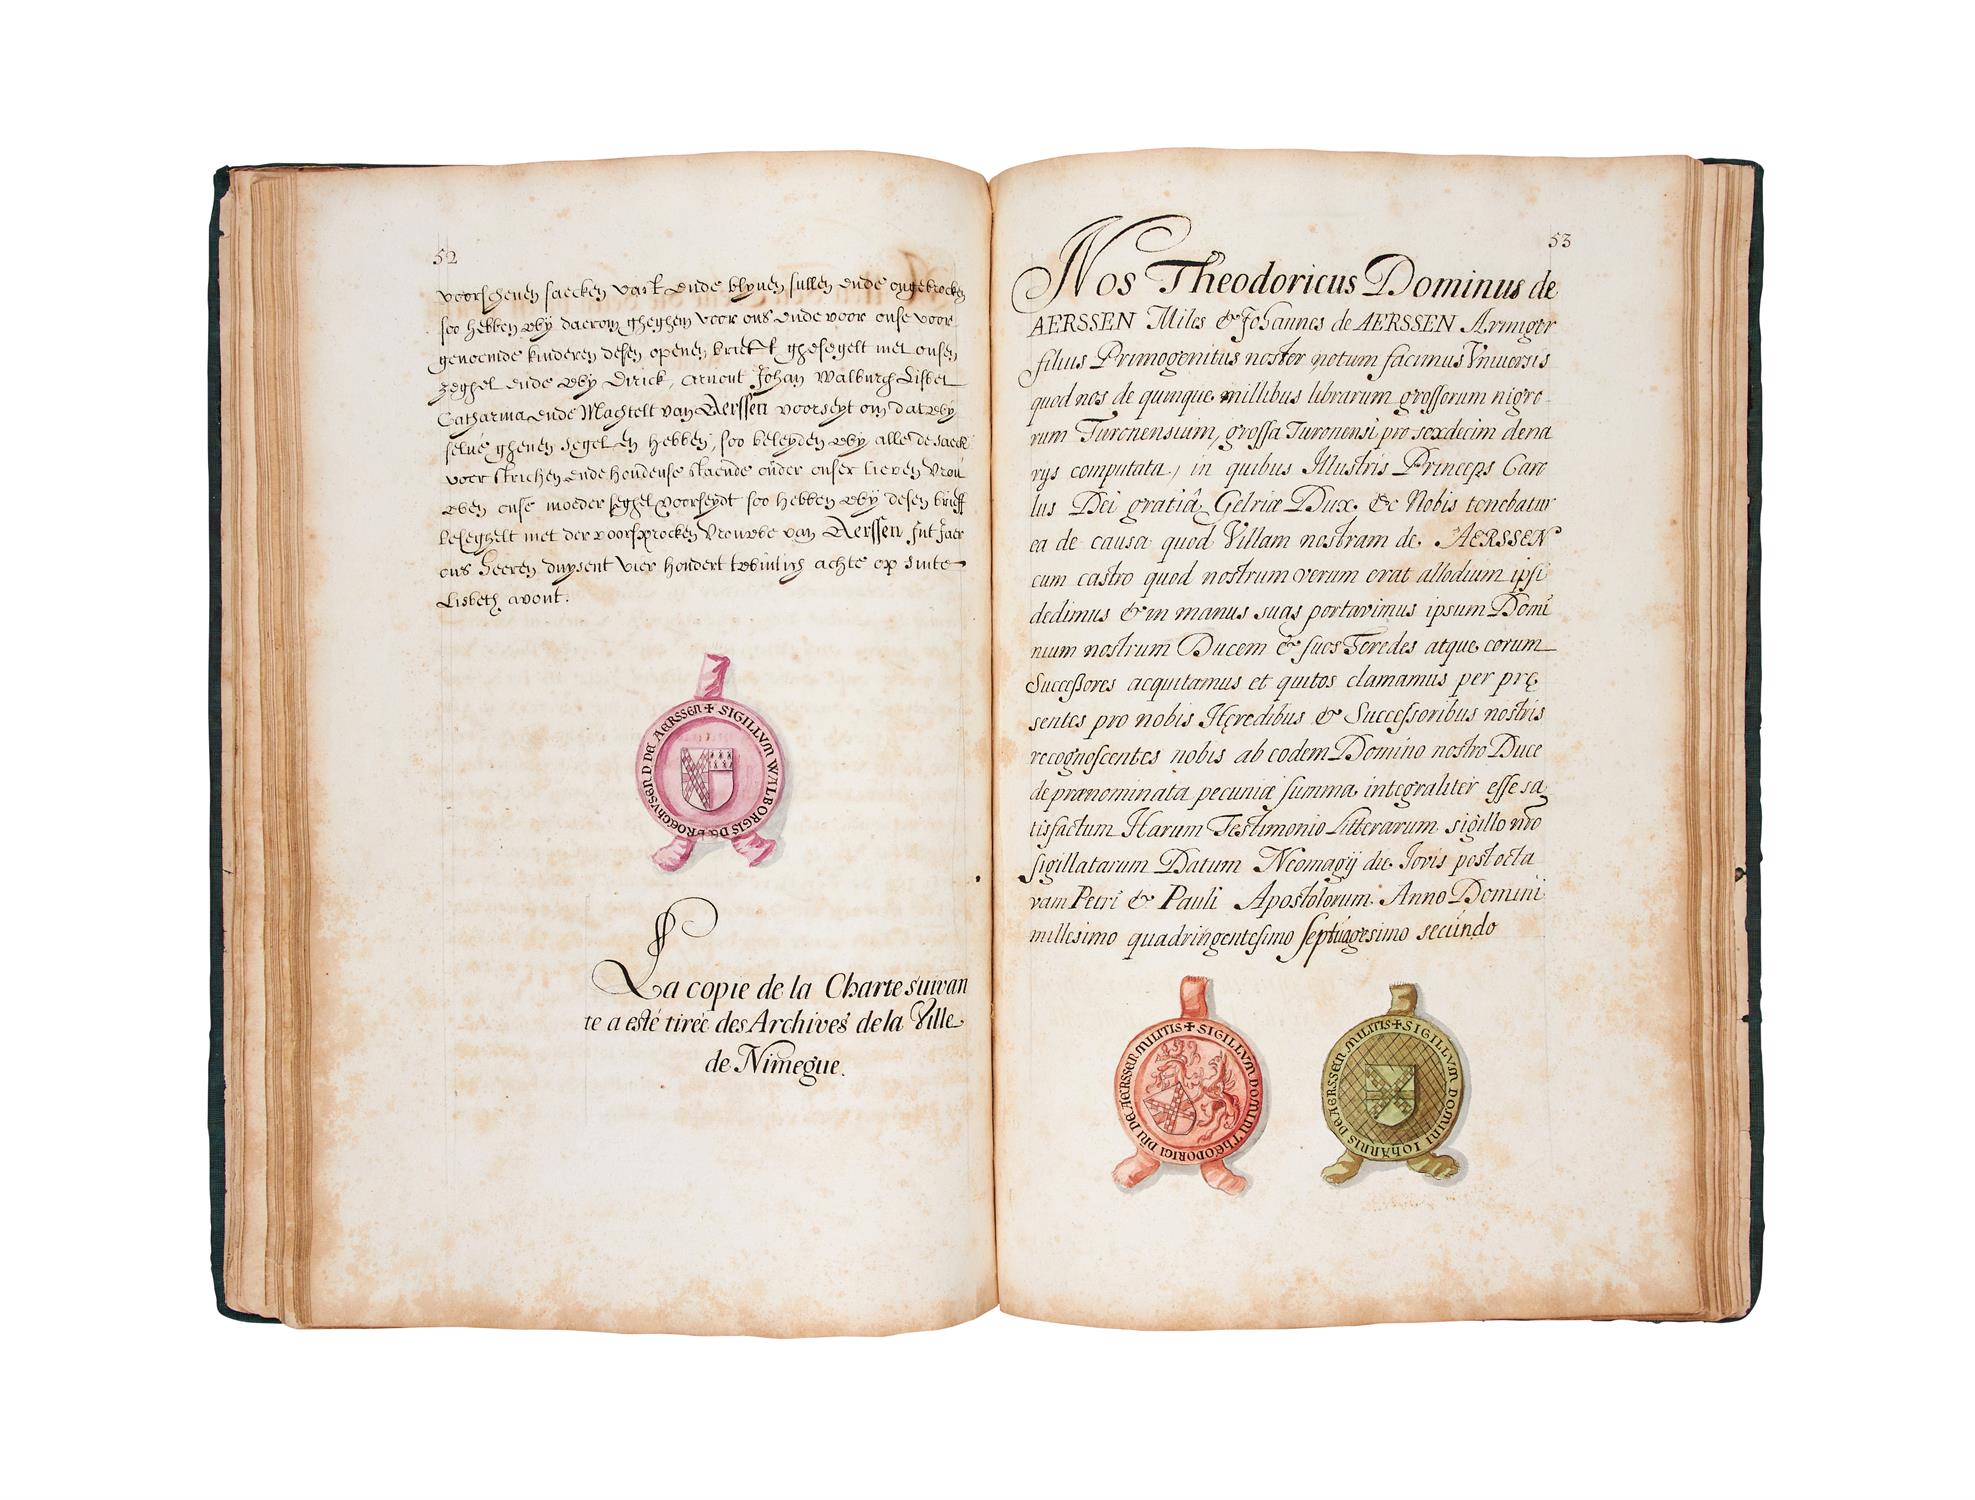 52
voorschenen saecken vast ende blyven sullen ende ongebrocken
soo hebben wÿ daerom gheghen voor ons ende voor onse voor
genoemde kinderen desen openen brieff ghesegelt met onsen
zeghel ende wÿ Dirick, Arnout Johan Walburgh Lisbet
Catharina ende Machtelt van Aerssen voorseyt om dat wÿ
selve ghenen segel en hebben, soo beleyden wÿ alle de saeck
voer strichen ende houdense staende onder onser lieven Vrou
wen onse moeder seghel voorseydt soo hebben wÿ desen brieff
beseghelt met der voorsprocken Vrouwe van Aerssen Int Jaer
ons Heeren duysent vier hondert twintich achte op sinte
Lisbeth avont.
✝ SIGILLVM WALBORGIS DE BROECHVSEN D DE AERSSEN
La copie de la Charte suivan
te a esté tirée des Archives de la Ville
de Nimegue.
53
Nos Theodoricus Dominus de
AERSSEN Miles & Johannes de AERSSEN Armiger
filius Primogenitus noster notum facimus Vniversis
quod nos de quinque millibus librarum grossorum nigro
rum Turonensium, grossa Turonensi pro sexdecim dena
rÿs computata, in quibus Illustris Princeps Caro
lus Dei gratiâ Gelriæ Dux &c Nobis tenebatur
ea de causa quod Villam nostram de AERSSEN
cum castro quod nostrum verum erat allodium ipsi
dedimus & in manus suas portavimus ipsum Domi
nium nostrum Ducem & suos Heredes atque eorum
Successores acquitamus et quitos clamamus per præ
sentes pro nobis Hęredibus & Successoribus nostris
recognoscentes nobis ab eodem Domino nostro Duce
de prænominata pecuniæ summa integraliter esse sa
tisfactum Harum Testimonio Litterarum sigillo nro
sigillatarum Datum Neomagÿ die Jovis post octa
vam Petri & Pauli Apostolorum. Anno Domini
millesimo quadringentesimo septuagesimo secundo
✝ SIGILLVM DOMINI THEODORICI DNI DE AERSSEN MILITIS
✝ SIGILLVM DOMINI IOHANNIS DE AERSSEN MILITIS